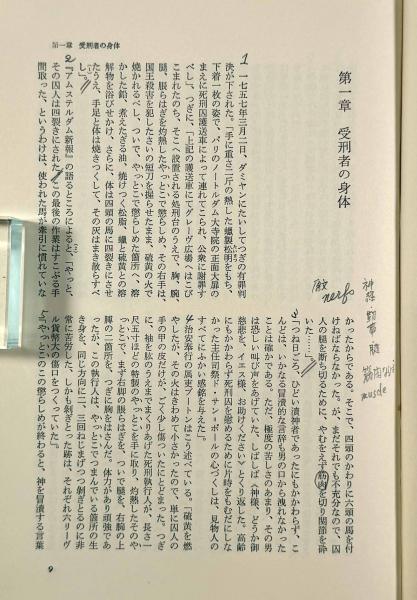 第一章　受刑者の身体
第一章　受刑者の身体
1
一七五七年三月二日、ダミヤンにたいしてつぎの有罪判
決が下された。「手に重さ二斤の熱した蠟製松明をもち、
下着一枚の姿で、パリのノートルダム大寺院の正面大扉の
まえに死刑囚護送車によって連れてこられ、公衆に謝罪す
べし」、つぎに、「上記の護送車にてグレーヴ広場へはこび
こまれたのち、そこへ設置される処刑台のうえで、胸、腕、
腿、脹らはぎを灼熱したやっとこで懲らしめ、その右手は、
国王殺害を犯したさいの短刀を握らせたまま、硫黄の火で
焼かれるべし、ついで、やっとこで懲らしめた箇所へ、溶
かした鉛、煮えたぎる油、焼けつく松脂、蠟と硫黄との溶
解物を浴びせかけ、さらに、体は四頭の馬に四裂きにさせ
たうえ、手足と体は焼きつくして、その灰はまき散らすべ
し。」
2
『アムステルダム新報』の語るところによると、「やっと、
その囚人は四裂きにされた。この最後の作業はすこぶる手
間取った、というわけは、使われた馬が牽引に慣れていな
かったからである。そこで、四頭のかわりに六頭の馬を付
けねばならなかった。が、まだそれでも不充分なので、囚
人の腿を断ち切るために、やむをえず筋肉を切り関節を砕
いた……。
3
「つね日ごろ、ひどい瀆神者であったにもかかわらず、こ
んどは、いかなる冒瀆的な言辞も男の口から洩れなかった
ことは確かである。ただ、極度の苦しさのあまり、その男
は恐しい叫び声をあげていた、しばしば《神様、どうか御
慈悲を、イエス様、お助けください》とくり返した。高齢
にもかかわらず死刑囚を慰めるために片時をもむだにしな
かった主任司祭ド・サン・ポールの心づくしは、見物人の
すべてにふかい感銘を与えた。」
4
治安奉行の属吏ブートンはこう述べている。「硫黄を燃
やしたが、その火はきわめて小さかったので、単に囚人の
手の甲の皮だけが、ごく少し傷ついたにとどまった。つぎ
に、袖を肱のうえまでまくりあげた死刑執行人が、長さ一
尺五寸ほどの特製のやっとこを手に取り、灼熱したそのや
っとこで、まず右脚の脹らはぎを、ついで腿を、右腕の上
膊の二箇所を、つぎに胸をはさんだ。体力があり頑強であ
ったが、この執行人は、やっとこでつまんでいる箇所の生
き身を、同じ方向に二、三回ねじまげつつ剝ぎとるのに非
常に苦労した、しかも剝ぎとった跡は、それぞれ六リーヴ
ル貨幣大の傷口をつくっていた。
5
「やっとこのこの懲らしめが終わると、神を冒瀆する言葉
nerfs
神経
腱
muscle
9